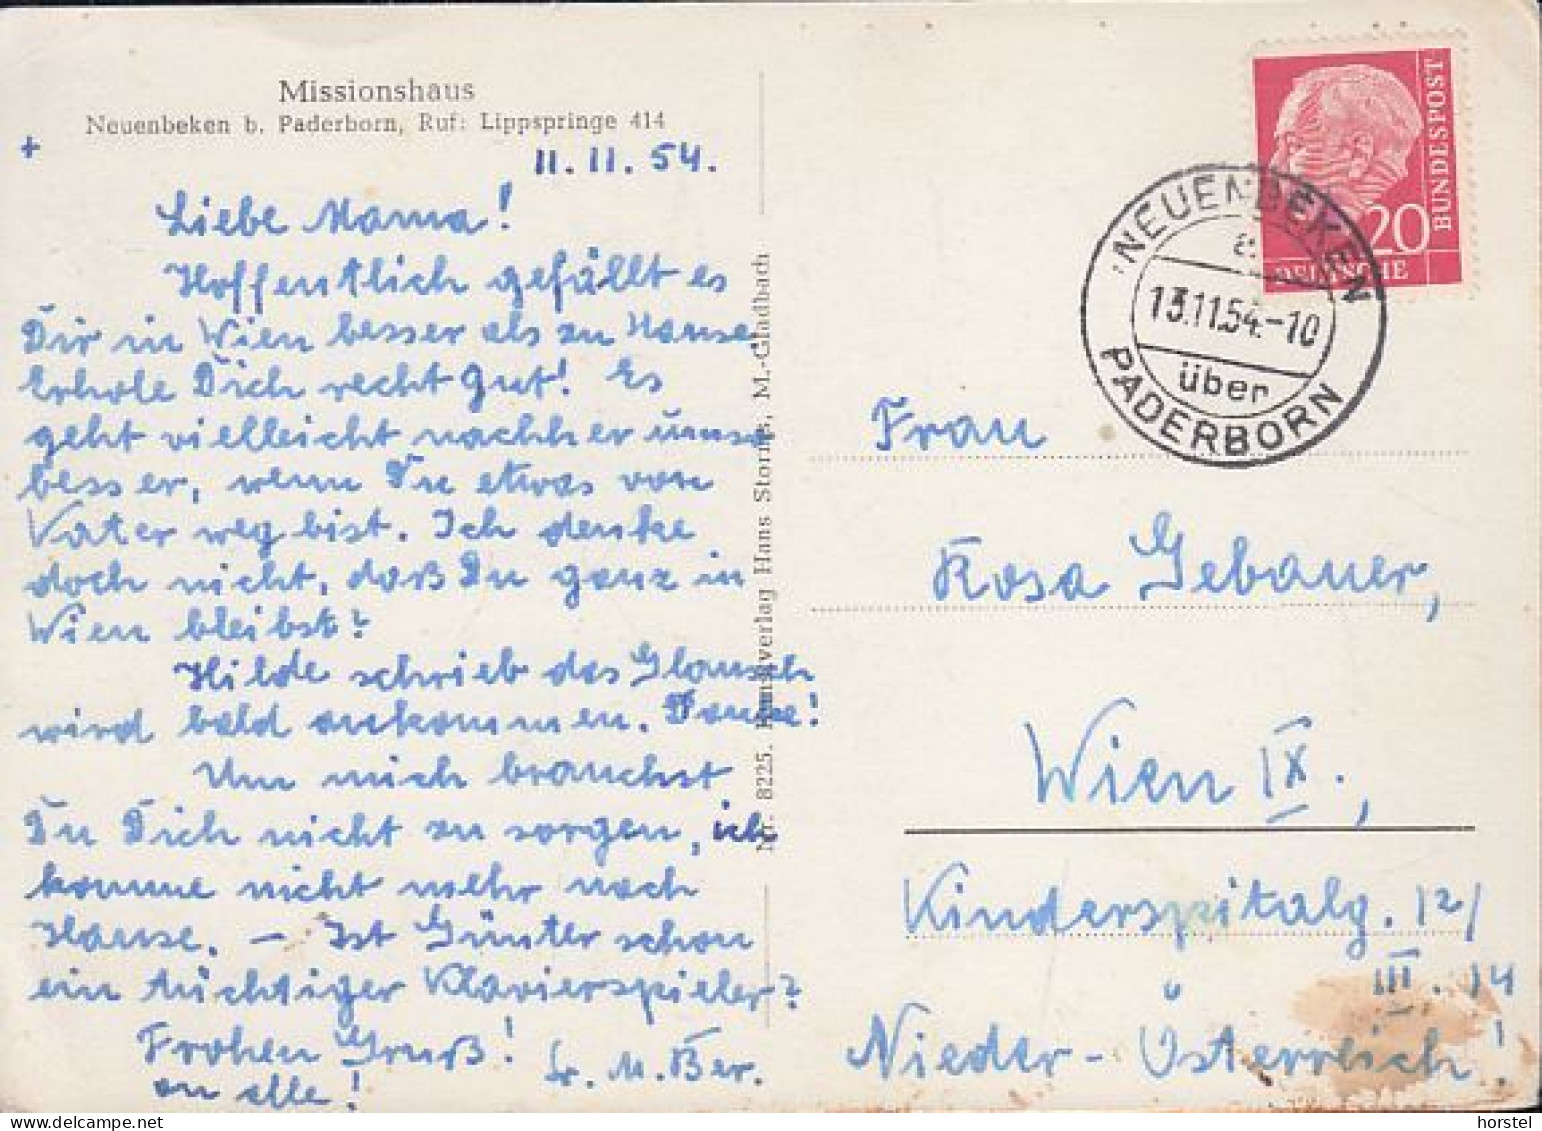 Missionshaus
Neuenbeken b. Paderborn, Ruf: Lippspringe 414
+
11. 11. 54.
Liebe Mama!
Hoffentlich gefällt es
Dir in Wien besser als zu Hause.
Erhole Dich recht gut! Es
geht vielleicht nachher umso
besser, wenn Du etwas von
Vater weg bist. Ich denke
doch nicht, daß Du ganz in
Wien bleibst?
Hilde schrieb das
wird bald ankommen. Danke!
Um mich brauchst
Du Dich nicht zu sorgen, ich
komme nicht mehr nach
Hause. – Ist Günter schon
ein tüchtiger Klavierspieler?
Frohen Gruß!
an alle!
Sr. M. Ber.
Nr. 8225. Kunstverlag Hans Storms, M.-Gladbach
DEUTSCHE
BUNDESPOST
20
NEUENBEKEN
a
13.11.54.-10
über
PADERBORN
Frau
Rosa Gebauer,
Wien IX.,
Kinderspitalg. 12/
III. 14
Nieder-Österreich!
horstel